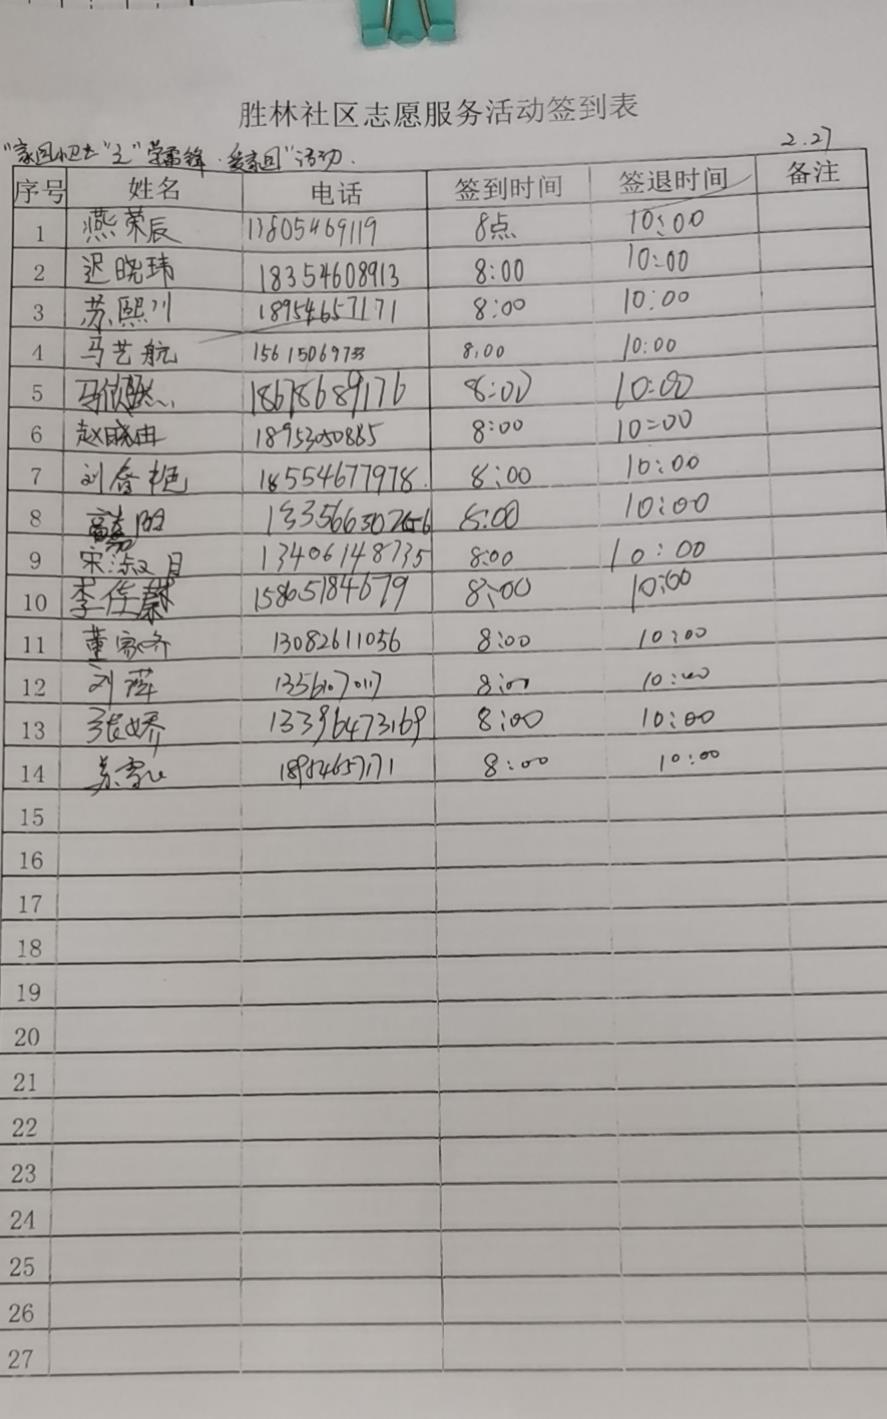 胜林社区志愿服务活动签到表
2.27
"家园卫士"之"学雷锋·爱家园"活动.
序号 姓名 电话 签到时间 签退时间 备注
1 燕荣辰 13805469119 8点 10:00
2 迟晓玮 18354608913 8:00 10:00
3 苏熙川 18954657171 8:00 10:00
4 马艺航 15615069733 8:00 10:00
5 18678689176 8:00 10:00
6 赵晓由 18953050885 8:00 10:00
7 刘 18554677978 8:00 10:00
8 8:00 10:00
9 宋淑月 13406148735 8:00 10:00
10 李佳 15865184679 8:00 10:00
11 董家齐 13082611056 8:00 10:00
12 刘萍 8:00 10:00
13 张娇 13396473169 8:00 10:00
14 苏 18954657171 8:00 10:00
15
16
17
18
19
20
21
22
23
24
25
26
27